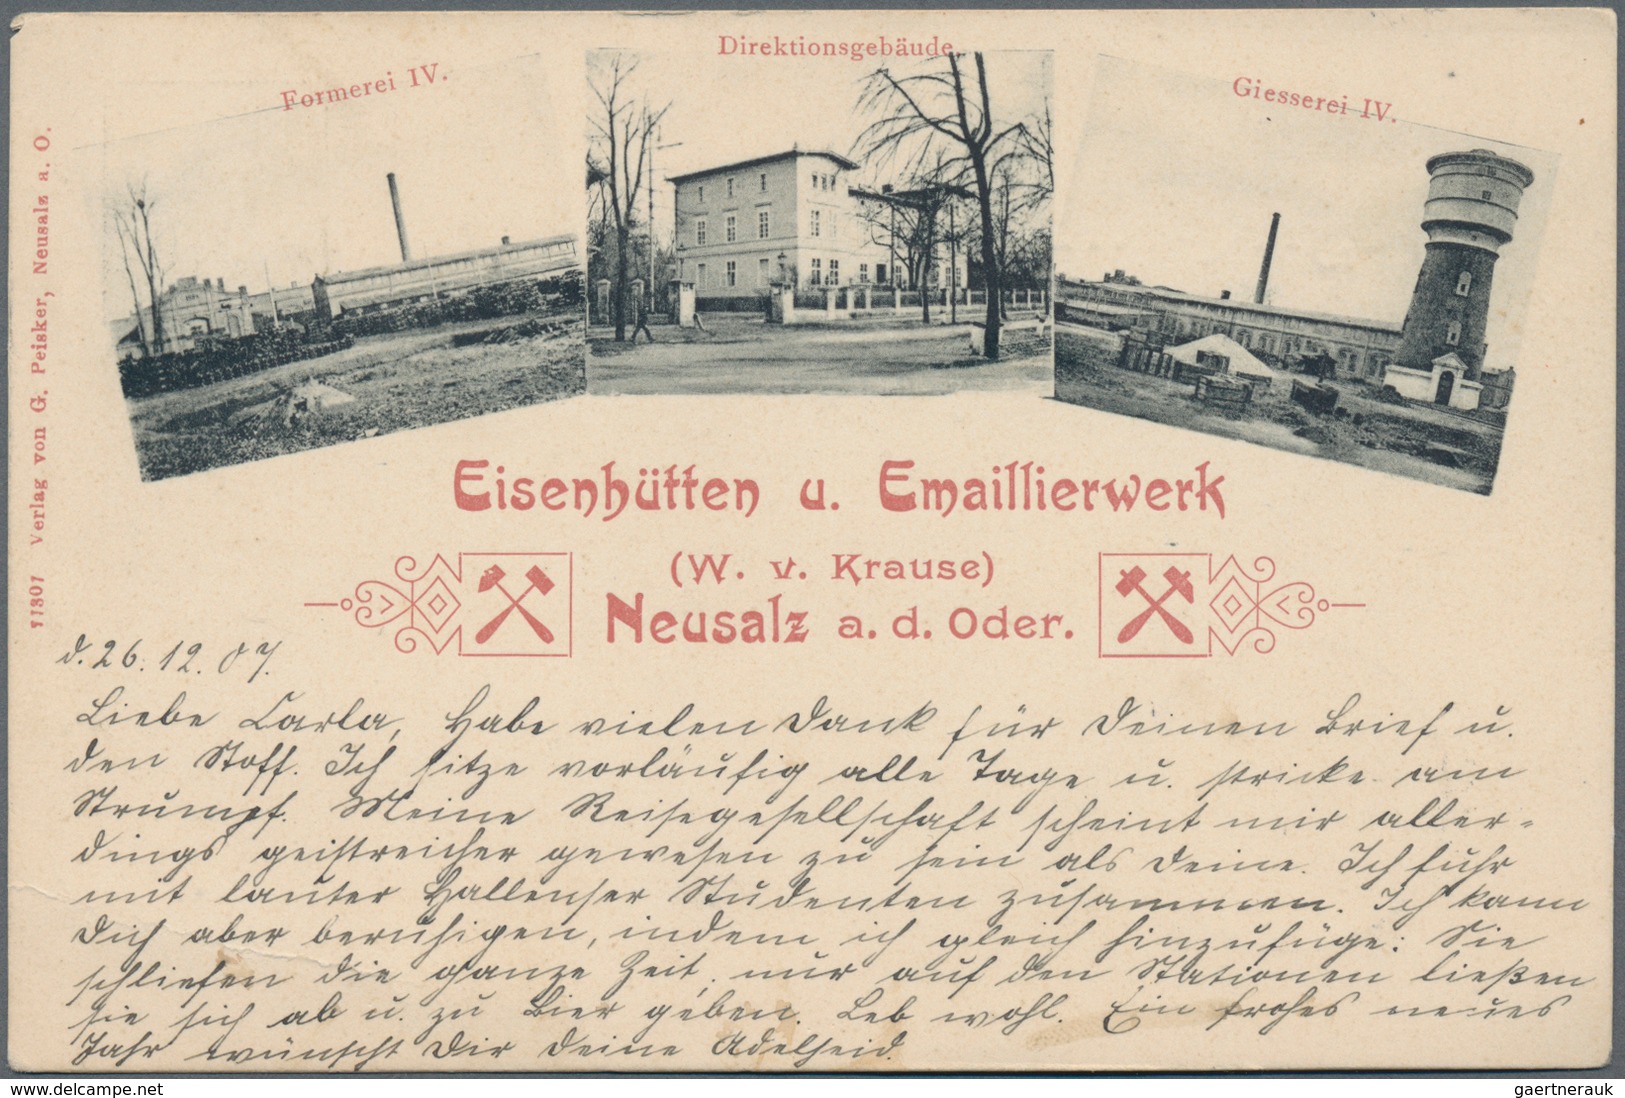 Direktionsgebäude.
Formerei IV.
Giesserei IV.
Eisenhütten u. Emaillierwerk
(W. v. Krause)
Neusalz a. d. Oder.
Verlag von G. Peisker, Neusalz a. O.
d. 26. 12. 07.
Liebe Carla, Habe vielen Dank für Deinen Brief u.
den Stoff. Ich sitze vorläufig alle Tage u. stricke am
Strumpf. Meine Reisegesellschaft scheint mir aller-
dings geistreicher gewesen zu sein als Deine. Ich fuhr
mit lauter Hallenser Studenten zusammen. Ich kann
Dich aber beruhigen, indem ich gleich hinzufüge: Sie
schliefen die ganze Zeit, nur auf den Stationen ließen
sie sich ab u. zu Bier geben. Leb wohl. Ein frohes neues
Jahr wünscht Dir Deine Adelheid.
www.delcampe.net
gaertnerauk